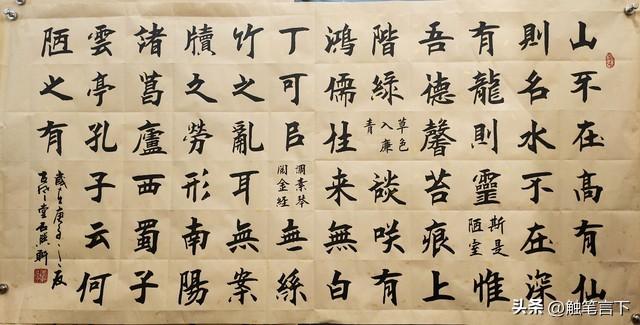 山不在高有仙
則名水不在深
有龍則靈斯是陋室惟
吾德馨苔痕上
階綠草色入廉青談咲有
鴻儒往来無白
丁可㠯調素琴閱金経無絲
竹之亂耳無案
牘之勞形南陽
諸葛廬西蜀子
雲亭孔子云何
陋之有
歲在庚子之夏
头条 @触笔言下